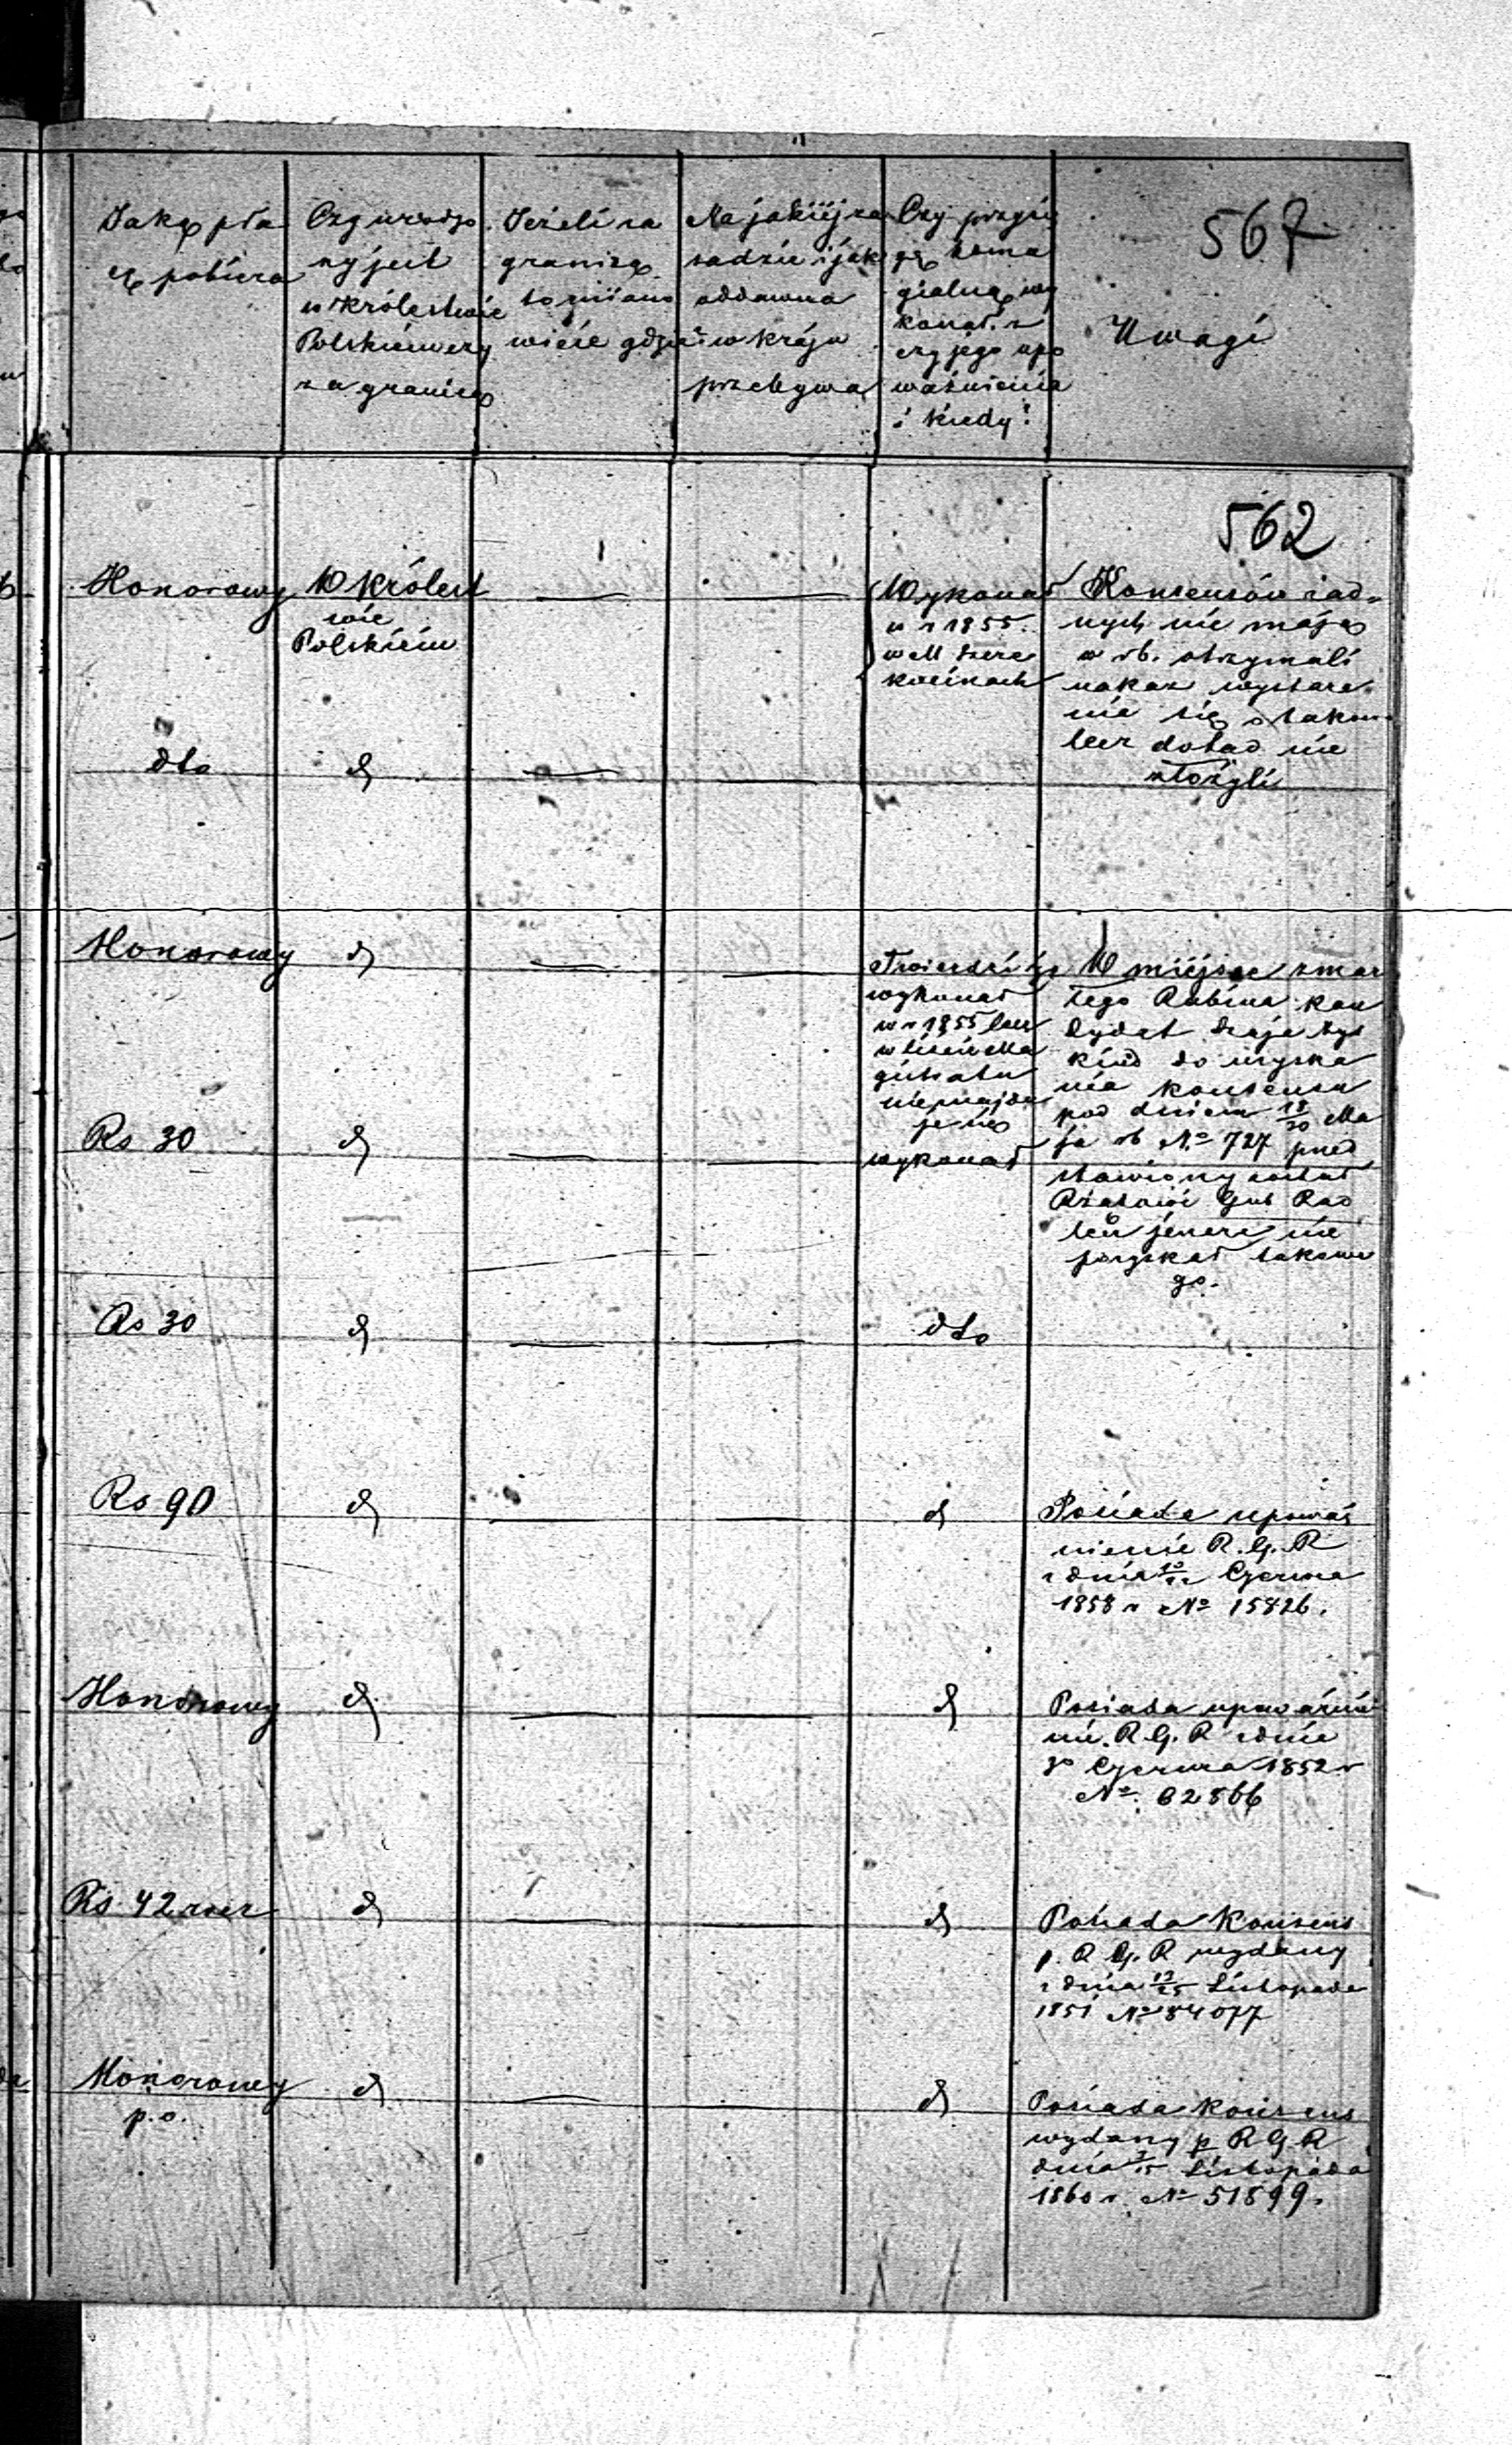 567
Jaką pła
cę pobiera
Czy urodzo
ny jest
w Królestwie
Polskiém czy
za granicą
Jeżeli za
granicą
to mianowicie gdzie
Na jakiéj za
sadzie i jak
oddawna
w kraju
przebywa
Czy przysię
gę homa
gialną wy
konał, z
czyjego upo
ważnienia
i kiedy?
Uwagi
562
Honorowy
W Królest
wie
Polskiém
Wykonał
w r 1855
w M
Konsensów żad-
nych nie mają
w rb. otrzymali
nakaz wystara
nia się o takow
lecz dotąd nie
złożyli
dto
d
Honorowy
d
Twierdzi że
wykonał
w r 1855 lecz
w
nieznajdu
je się
wykonał
W miejsce zmar
łego Rubina kan
dydat
do uzyska
nia konsensu
pod dniem 18/30 Ma
ja rb No 727 przed
stawiony został
Rządowi Gub Rad
lecz jeszcze nie
pozyskał takowe
go.
Rs 30
d
Rs 30
d
dto
Rs 90
d
d
Posiada upoważ
nienie R. G. R
z dnia Czerwca
1858 r No 15826.
Honorowy
d
d
Posiada upoważnie
nie R. G. R z dnia
Czerwca 1852 r
No 62866
Rs 42
d
d
Posiada Konsens
p. R G. R wydany
z dnia 13/25 Listopada
1851 No 84077
Honorowy
p.o.
d
d
Posiada Konsens
wydany p R G R
dnia 3/15 Listopada
1860 r. No 51899.